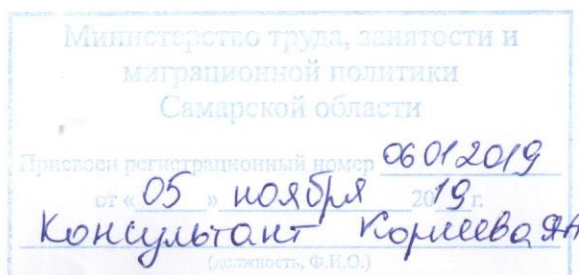 Министерство труда, занятости и
миграционной политики
Самарской области
Присвоен регистрационный номер 06012019
от «05» ноября 2019 г.
Консультант
(должность, Ф.И.О.)